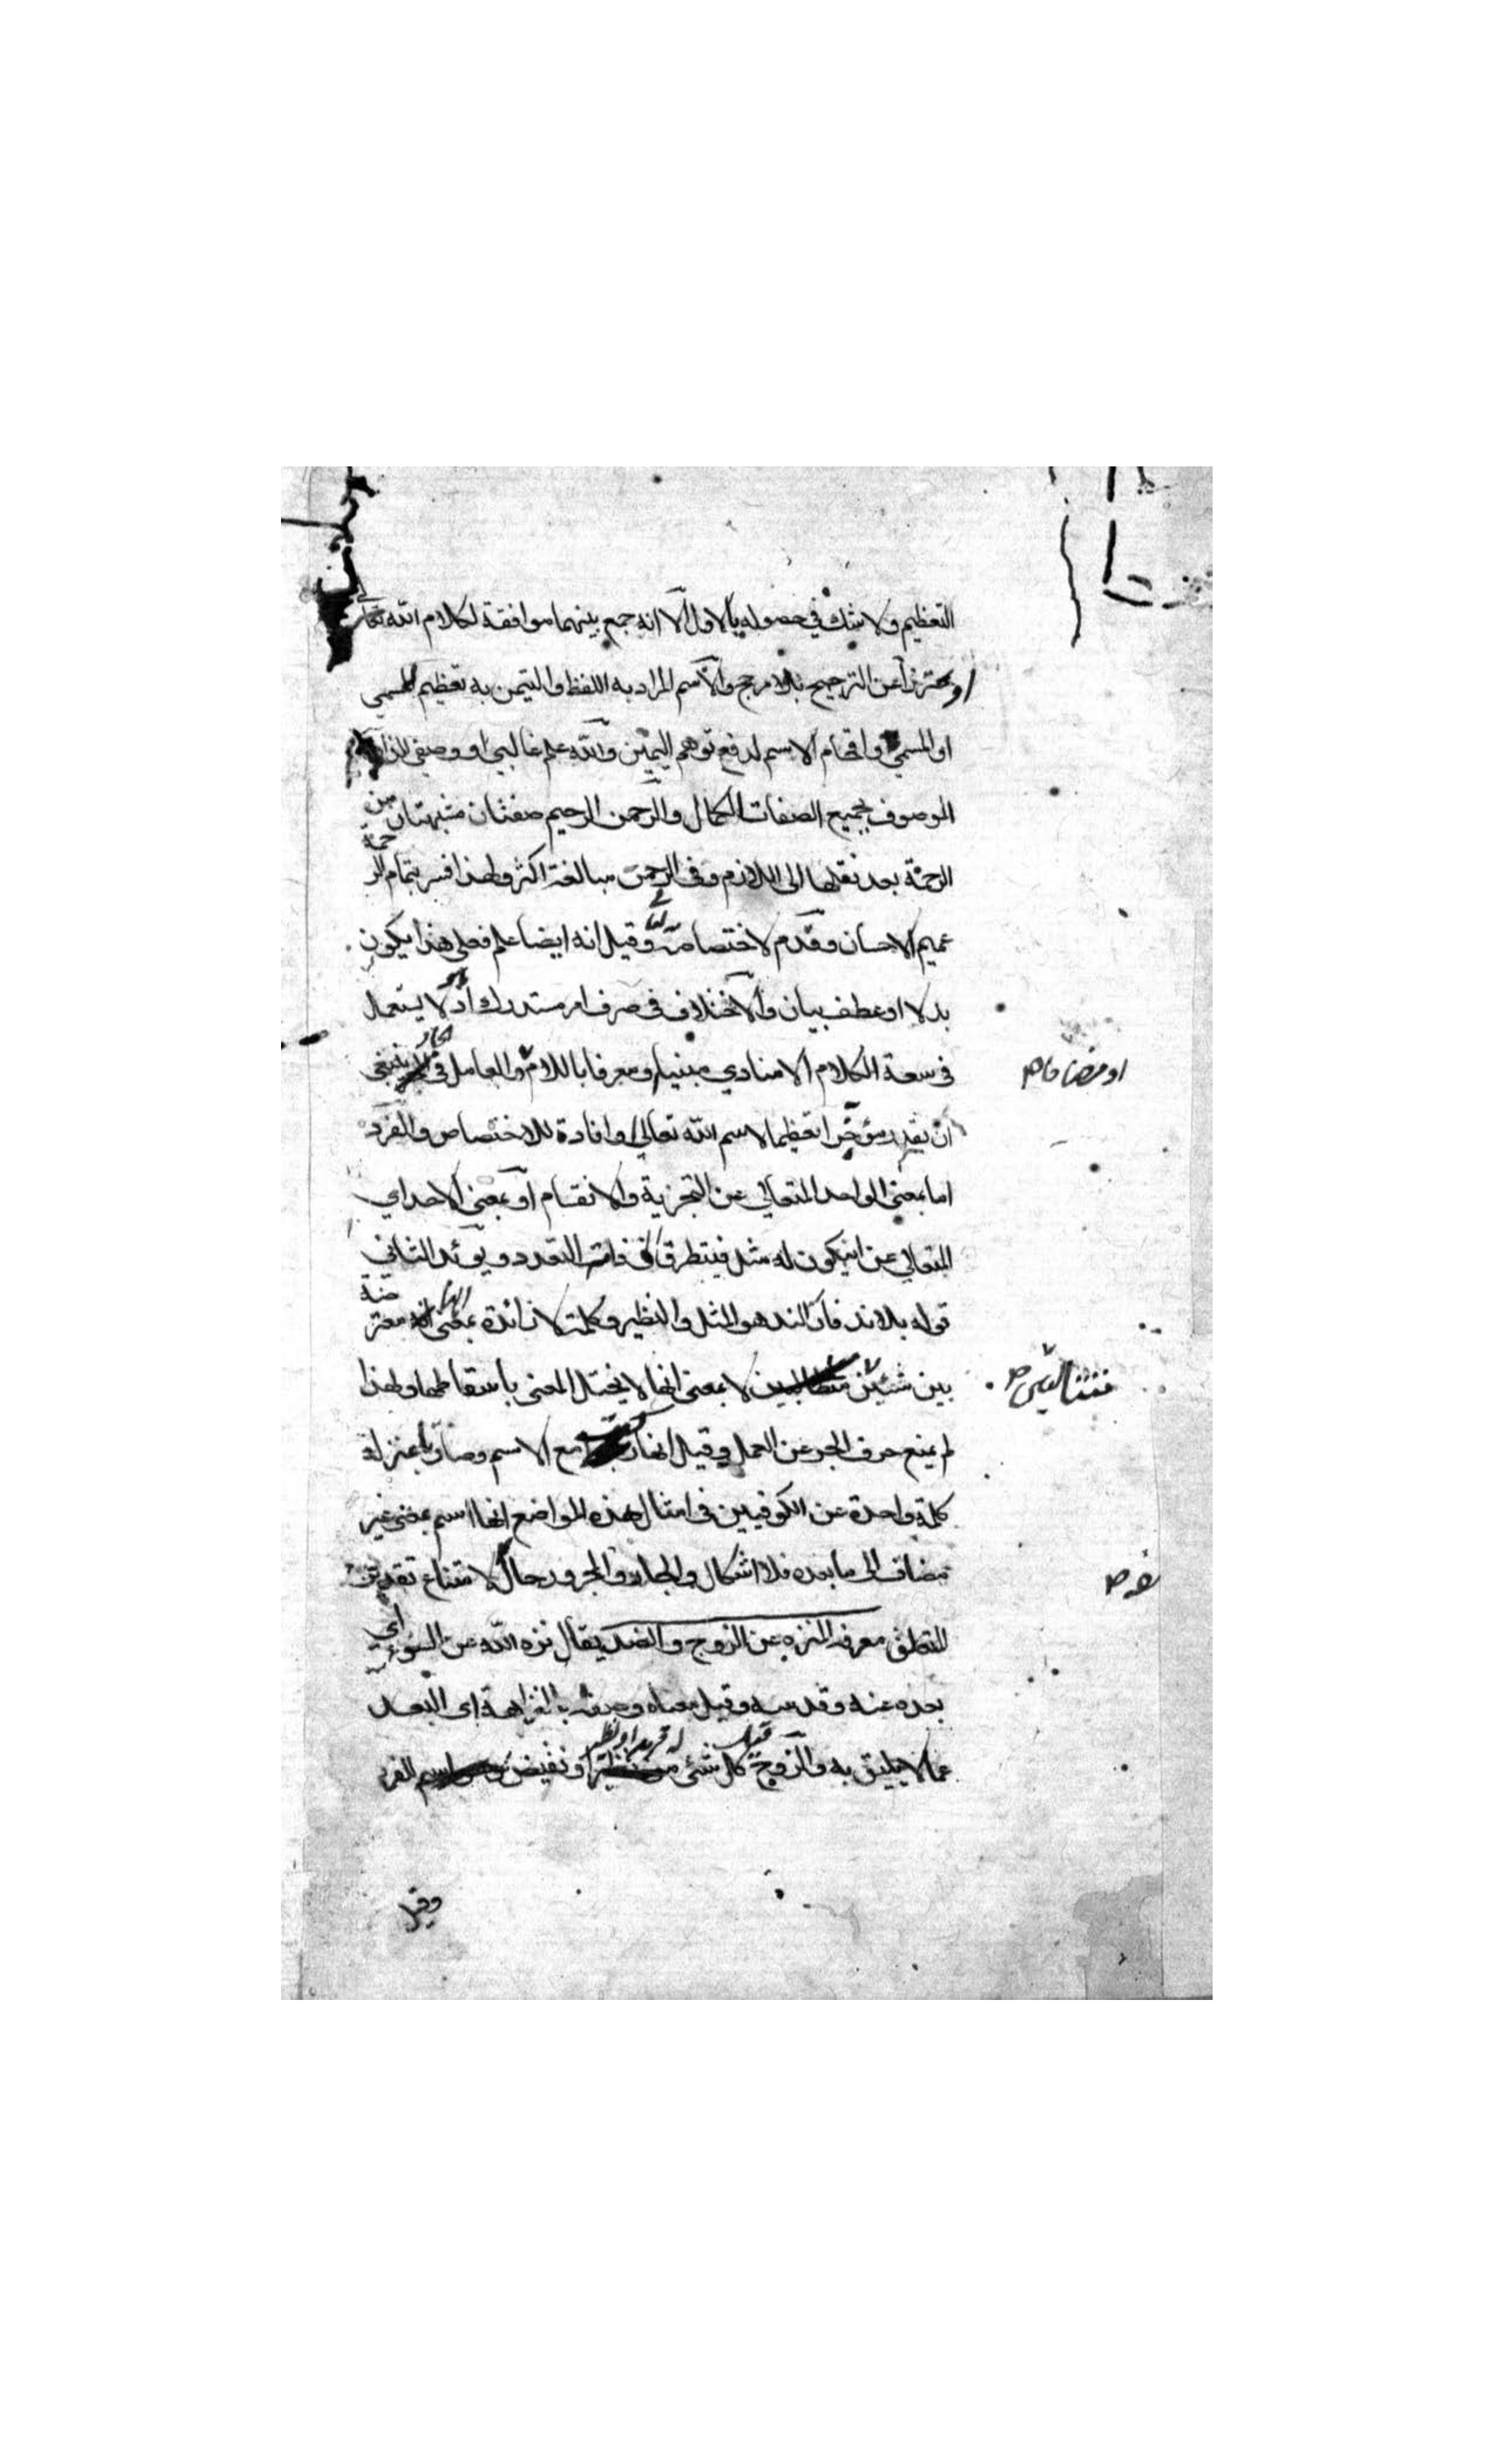 التعظيم ولا شك في حصوله بالاول الا انه جمع بينهما موافقة لكلام الله تعالى
او محترزا عن الترجيح بلا مرجح والاسم المراد به اللفظ والتيمن به تعظيم المسمي
او المسمي واقحام الاسم لدفع توهم اليمين والله علم غالبي او وصفي للذات
الموصوف بجميع الصفات الكمال والرحمن الرحيم صفتان مشبهتان من
الرحمة بعد نقلها الى اللازم وفى الرحمن مبالغة اكثر ولهذا فسر بتمام الرحمة
عميم الاحسان وقدم لاختصاصه وقيل انه ايضا علم فعلى هذا يكون
بدلا او عطف بيان والاختلاف فى صرف امر مستدرك اذ لا يستعمل
فى سعة الكلام الا منادي مبنيا ومعرفا باللام والعامل فى الجار ينبغى
او مضافا صح
ان يقدر مؤخرا تعظيما لاسم الله تعالى وافادة للاختصاص والفرد
اما بمعنى الواحد المتعالي عن التجزية والانقسام او بمعنى الاحد اي
المتعالي عن ان يكون له مثل فيتطرق فى ذاته التعدد ويؤئد الثانى
قوله بلا ند فان الند هو المثل والنظير وكلمة لا زائدة بمعنى انها معترضة
بين شيئين لا بمعنى انها لا يختل المعنى باسقاطها ولهذا
لم يمنع حرف الجر عن العمل وقيل انها ركبت مع الاسم وصارتا بمنزلة
كلمة واحدة عن الكوفيين فى امثال هذه المواضع انها اسم بمعنى غير
مضاف الى ما بعده فلا اشكال والجار والمجرور حال لامتناع تقدير
المتعلق معرفه المنزه عن الزوج والضد يقال نزه الله عن السوء اى
بعده عنه وقدسه وقيل معناه وصفه بالنزاهة اى البعد
عما لا يليق به والزوج قيل كل شئ له قرين او نظير او نقيض الفرد
وقيل